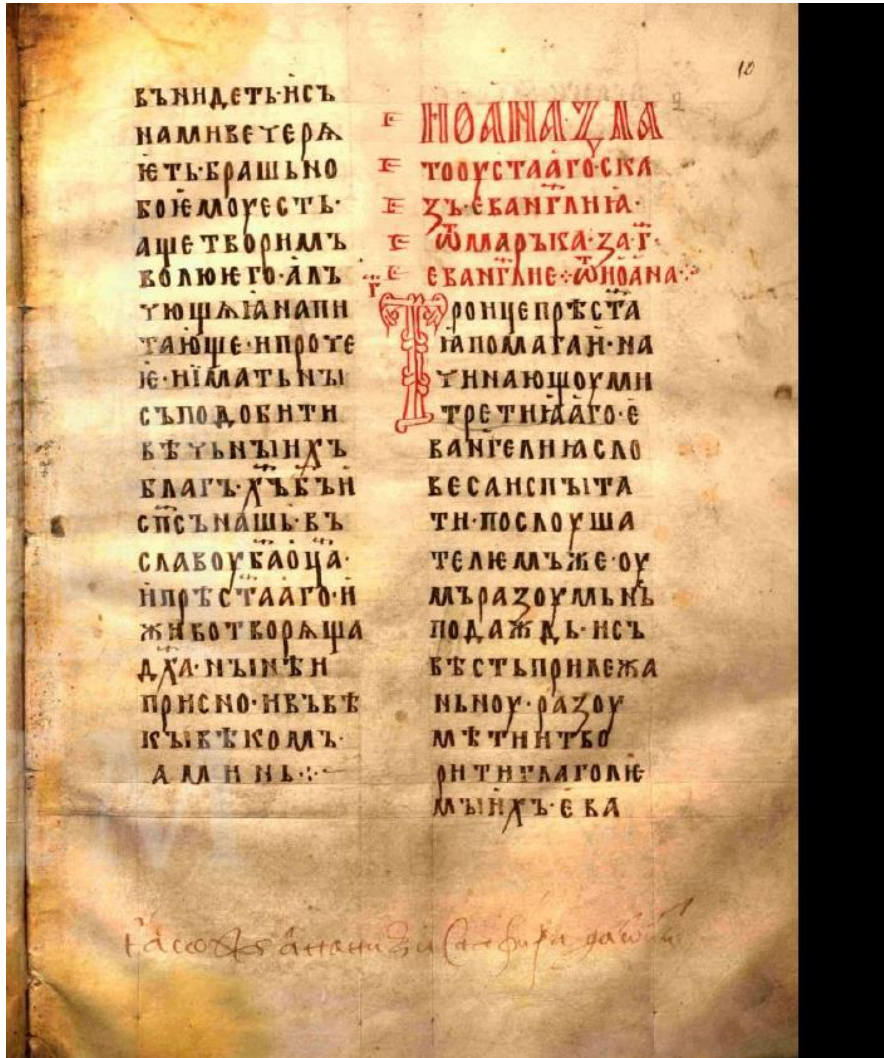 вънидеть·исъ
нами вечеря
ѥть·брашьно
боѥмоуесть·
аще творимъ
волюѥго·алъ
чющѧꙗнапи
тающе·ипроче
ѥ·нїматьнꙑ
съподобити
вѣчьнꙑихъ
благъ·х҃ъб҃ъи
сп҃съ нашь·въ
славоуб҃аоц҃а·
ипрѣст҃ааго·и
животворѧща
дх҃а·нꙑнѣи
присно·ивъвѣ
кꙑвѣкомъ·
аминь·:·
10
иоаназла
тооустааго·ска
зъ·еванг҃лиꙗ·
ѿмаръка·за·г҃·
еванг҃лие·:·ѿиоана·:·
г҃
Троицепрѣст҃а
ꙗпомагаи·на
чинающоуми
третиꙗаго·е
вангелиꙗсло
весаиспꙑта
ти·послоуша
телемъже·оу
мъразоумьнь
подаждь·исъ
вѣстьприлежа
ньноу·разоу
мѣтиитво
ритиглаголѥ
мꙑихъ·ева